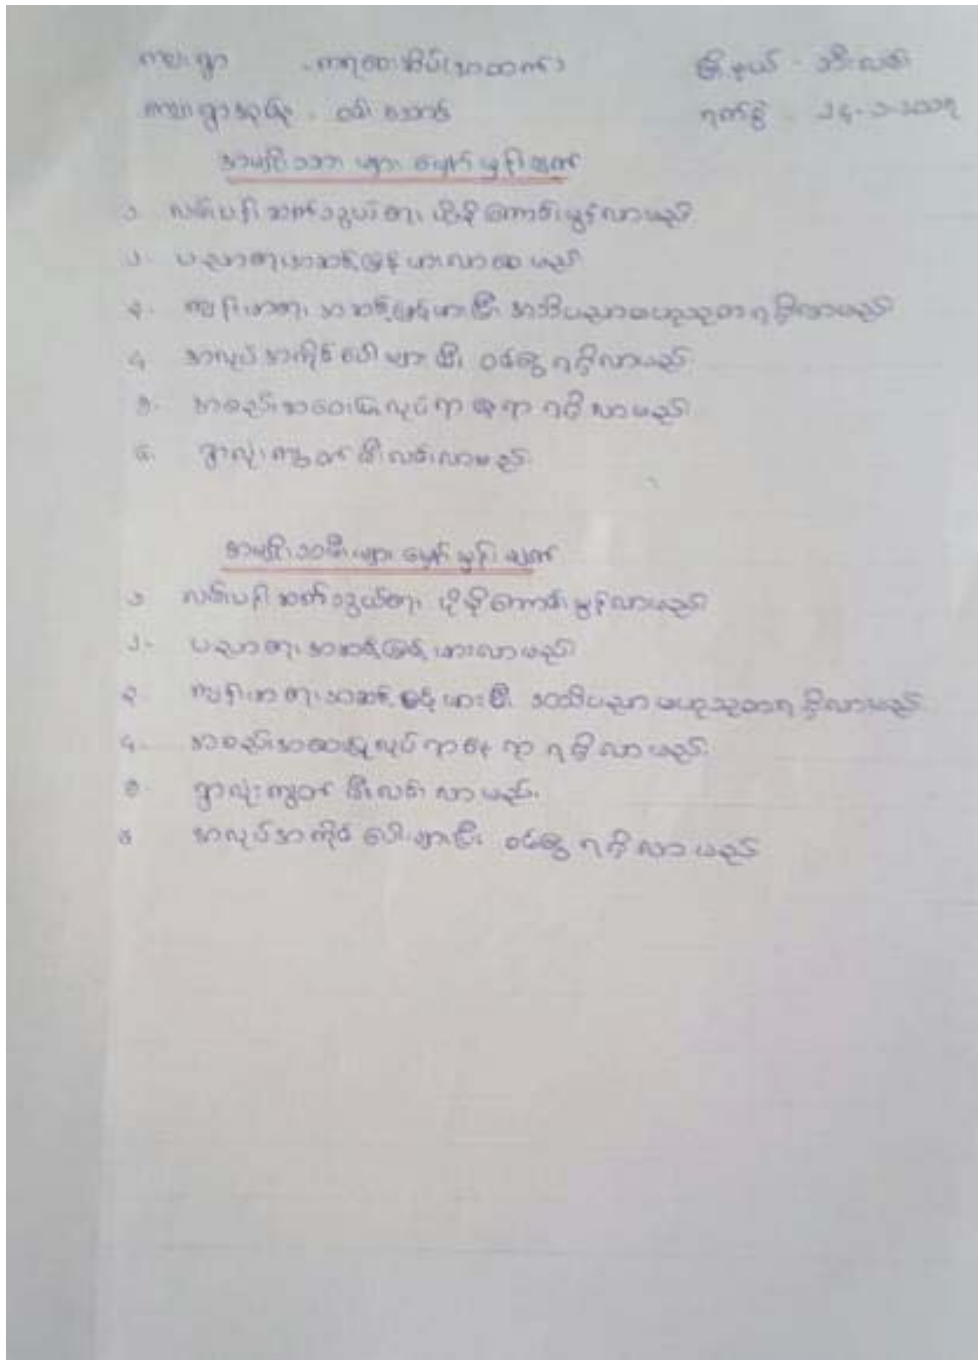 ကျေးရွာ - ကရထေးအိပ်(အထက်) မြို့နယ် - သီးလင်း
ကျေးရွာအုပ်စု - ဝါးတောင် ရက်စွဲ - ၁၄-၁-၁၀၁၇
အမျိုးသားများ မျှော်မှန်းချက်
၁. လမ်းပန်းဆက်သွယ်ရေး ပိုမိုကောင်းမွန်လာမည်
၂. ပညာရေးအဆင့်မြင့်မားလာမည်
၃. ကျန်းမာရေး အဆင့်မြင့်မားပြီး အသိပညာဗဟုသုတရရှိလာမည်
၄. အလုပ်အကိုင်ပေါများပြီး ဝင်ငွေရရှိလာမည်
၅. အစည်းအဝေးပြုလုပ်ရာနေရာရရှိလာမည်
၆. ရွာလုံးကျွတ်မီးလင်းလာမည်
အမျိုးသမီးများ မျှော်မှန်းချက်
၁. လမ်းပန်းဆက်သွယ်ရေး ပိုမိုကောင်းမွန်လာမည်
၂. ပညာရေးအဆင့်မြင့်မားလာမည်
၃. ကျန်းမာရေးအဆင့်မြင့်မားပြီး အသိပညာဗဟုသုတရရှိလာမည်
၄. အစည်းအဝေးပြုလုပ်ရာနေရာရရှိလာမည်
၅. ရွာလုံးကျွတ်မီးလင်းလာမည်
၆. အလုပ်အကိုင်ပေါများပြီး ဝင်ငွေရရှိလာမည်